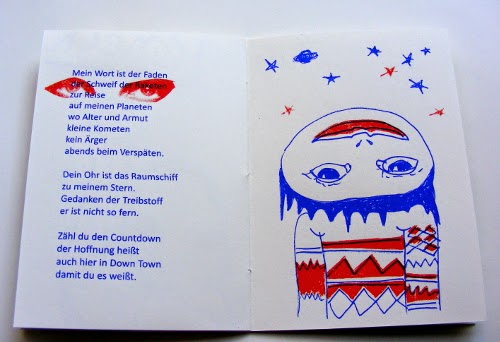 Mein Wort ist der Faden
der Schweif der Raketen
zur Reise
auf meinen Planeten
wo Alter und Armut
kleine Kometen
kein Ärger
abends beim Verspäten.
Dein Ohr ist das Raumschiff
zu meinem Stern.
Gedanken der Treibstoff
er ist nicht so fern.
Zähl du den Countdown
der Hoffnung heißt
auch hier in Down Town
damit du es weißt.